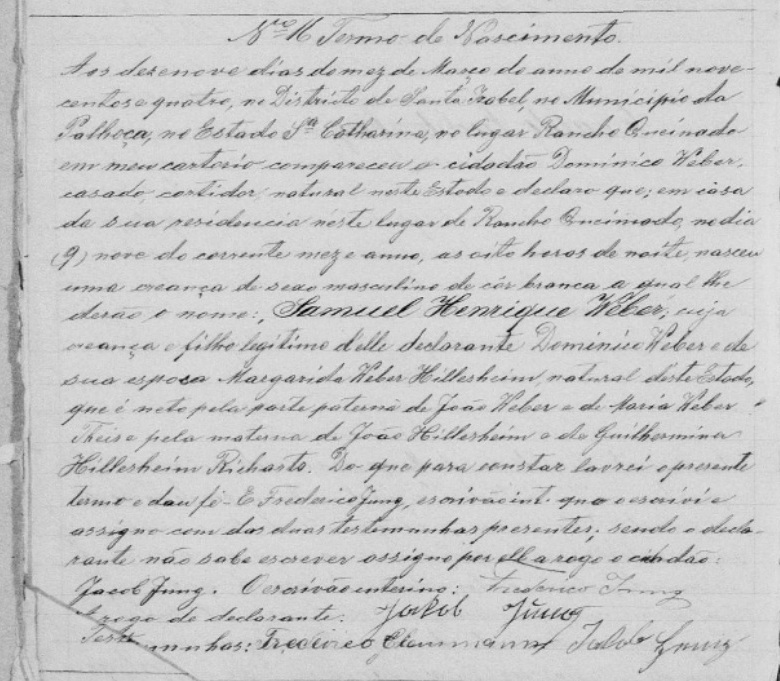 Nº 16 Termo de Nascimento.
Aos desenove dias do mez de Março do anno de mil nove-
centos e quatro, no Districto de Santa Izabel, no Municipio da
Palhoça, no Estado Sta Catharina, no lugar Rancho Queimado
em meu cartorio compareceu o cidadão Dominico Weber,
casado, cortidor, natural neste Estado e declaro que; em casa
da sua residencia neste lugar de Rancho Queimado, no dia
(9) nove do corrente mez e anno, as oito horas de noite, nasceu
uma creança de sexo masculino de côr branca a qual lhe
derão o nome:, Samuel Henrique Weber, cuja
creança e filho legitimo delle declarante Dominico Weber e de
sua espoca Margarida Weber Hillesheim, natural deste Estado,
que é neto pela parte paterna de João Weber e de Maria Weber
Theis e pela materna de João Hillesheim e de Guilhermina
Hillesheim Richarts. Do que para constar lavrei o presente
termo e dau fé - E Frederico Jung, escrivão int. que o escrivi e
assigno com das duas testemunhas presentes; sendo o decla-
rante não sabe escrever assigno por elle a rogo o cidadão:
Jacob Jung. O escrivão enterino: Frederico Jung
A rogo do declarante: Jakob Jung
Testemunhas: Frederico Jakob